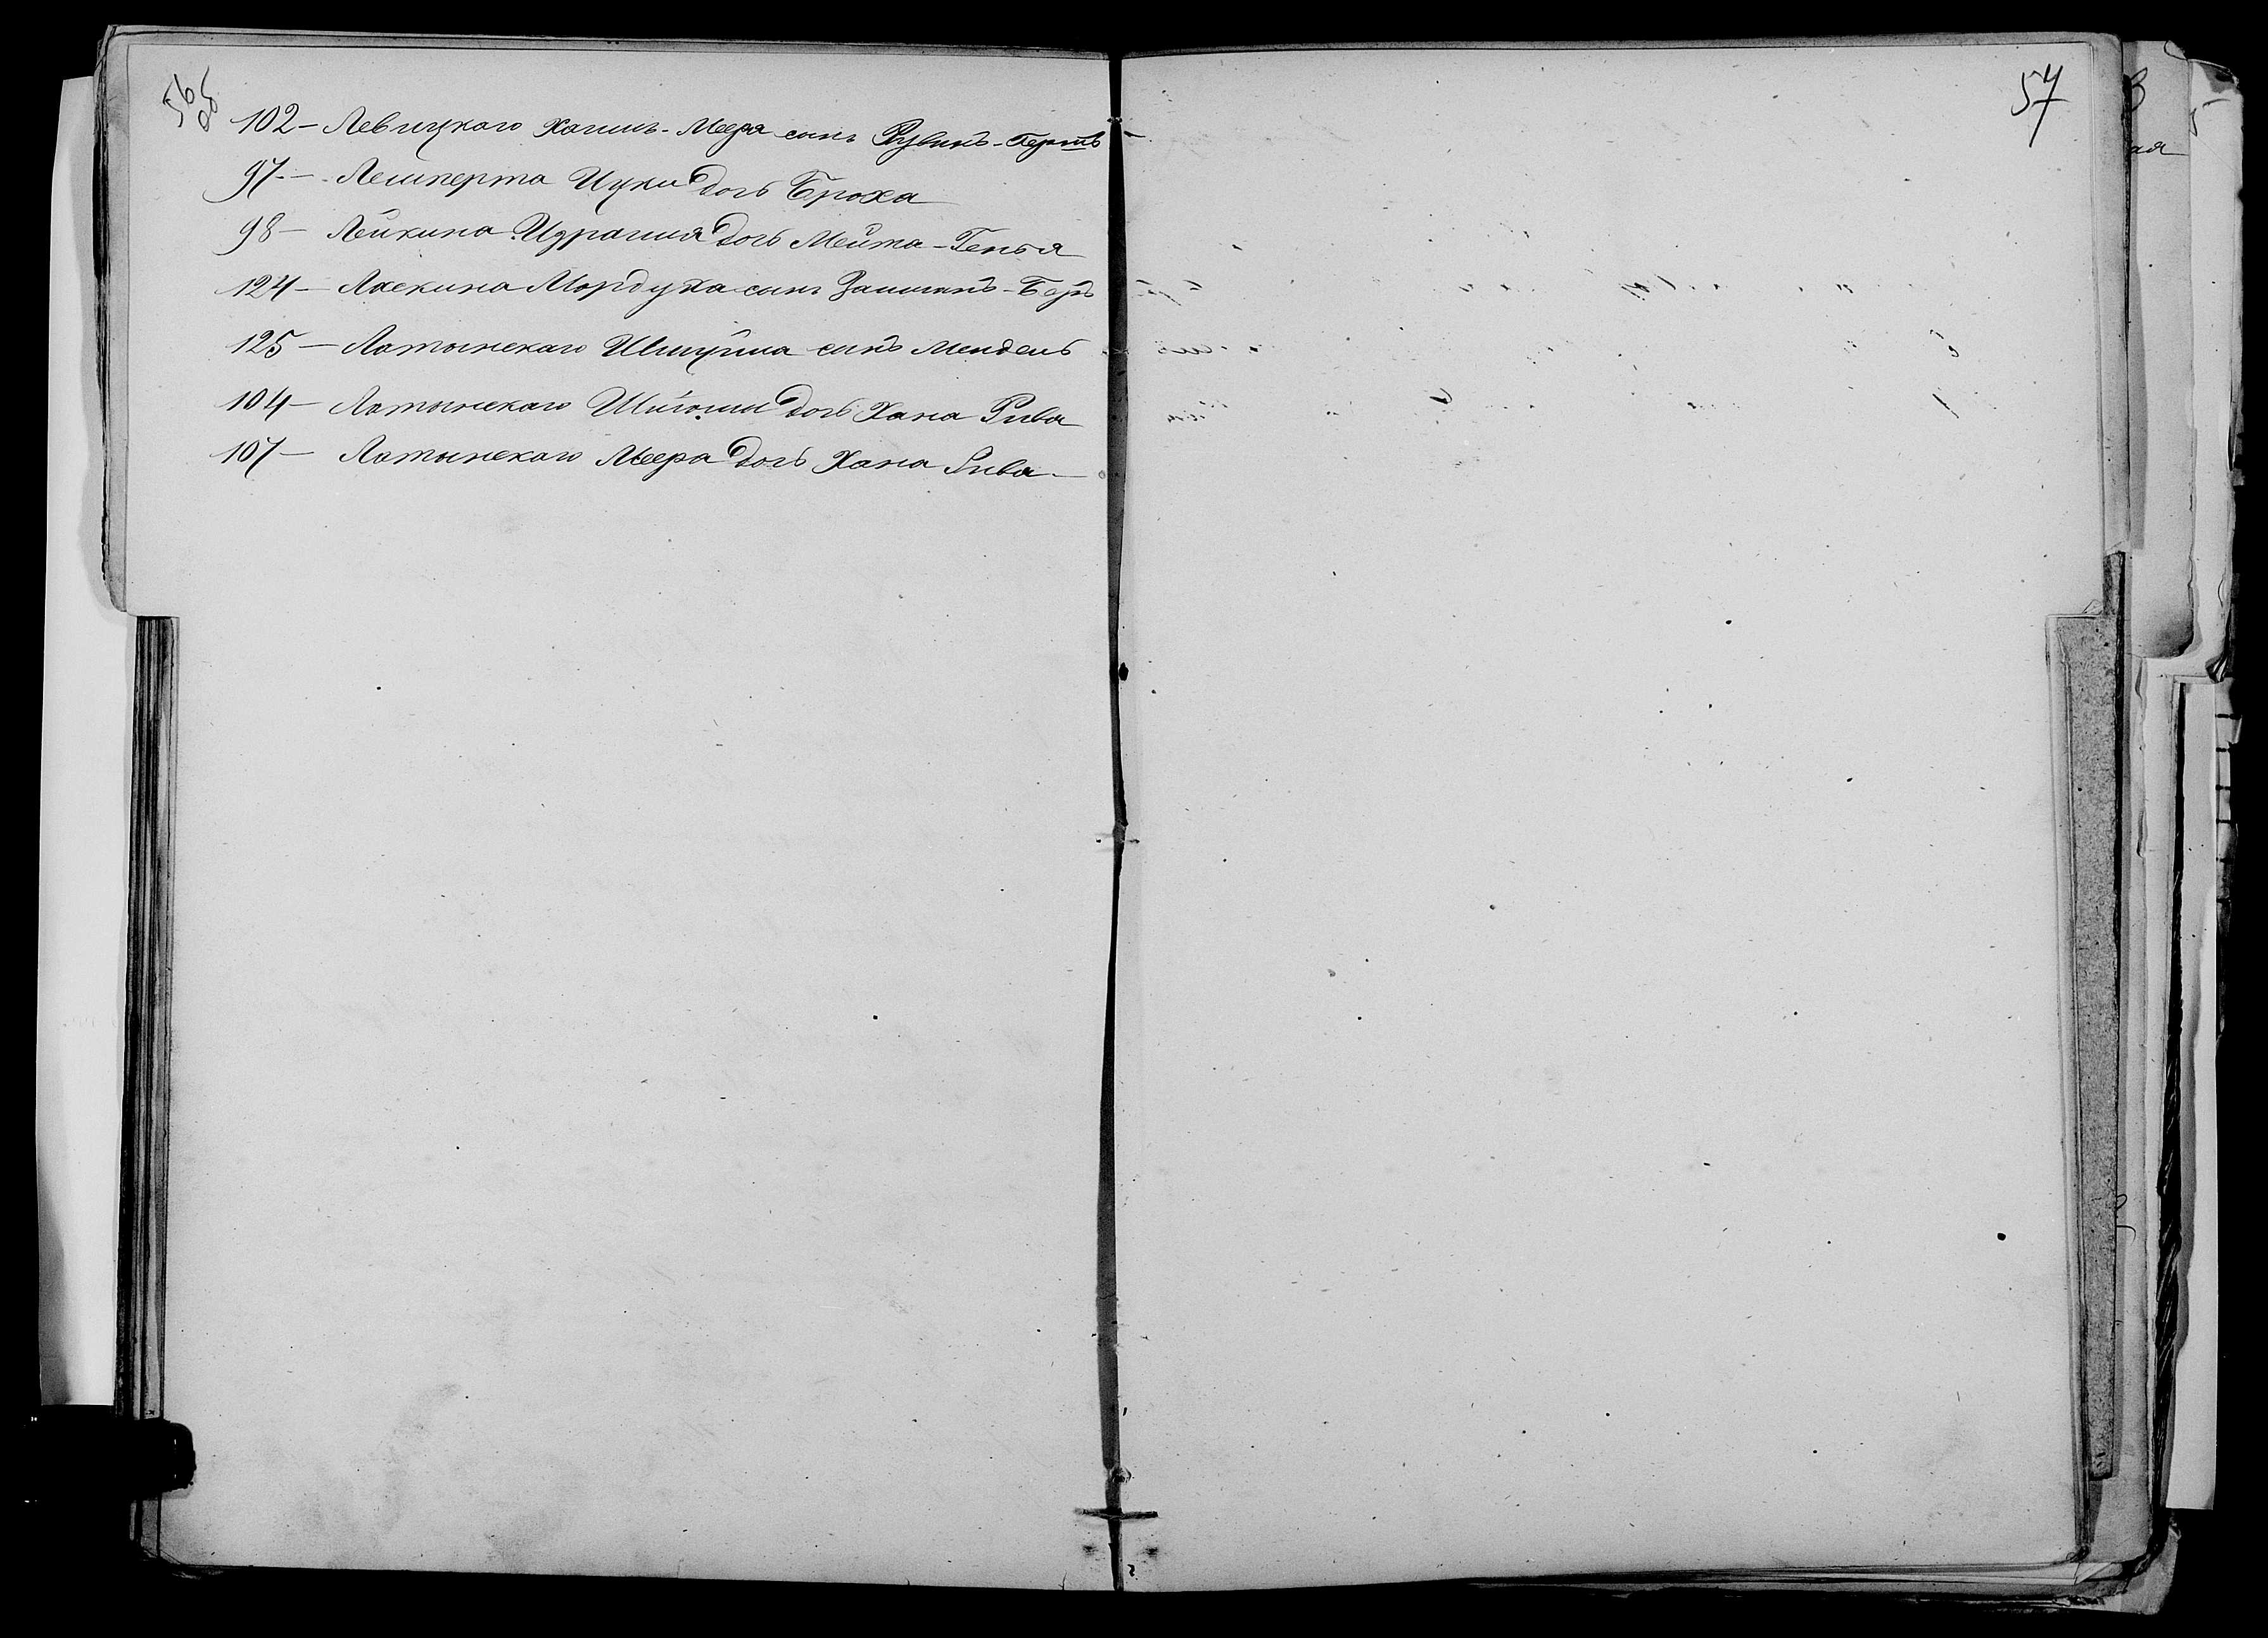 56 об
102 – Левицкаго Хаимъ-Меера сынъ Рувинъ-Гершъ –
97 – Лемперта Ицки дочь Броха
98 – Лейкина Израиля дочь Мейта-Генья
124 – Ласкина Мордуха сынъ Залманъ-Беръ
125 – Латынскаго сынъ Мендель
104 – Латынскаго дочь Хана Рива
107 – Латынскаго Меера дочь Хана Рива –
57
ая